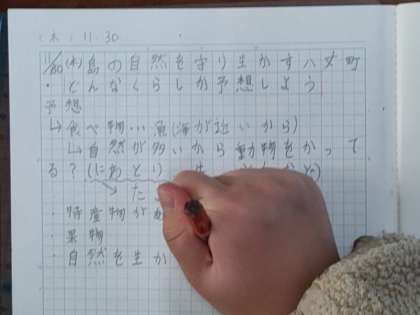 (木) 11.30
11/30 (木) 島の自然を守り生かす八丈町
・どんなくらしか予想しよう
予想
↳食べ物…魚(海が近いから)
↳自然が多いから動物をかって
る?(にわとり
た
・特産物が
・果物
・自然を生か